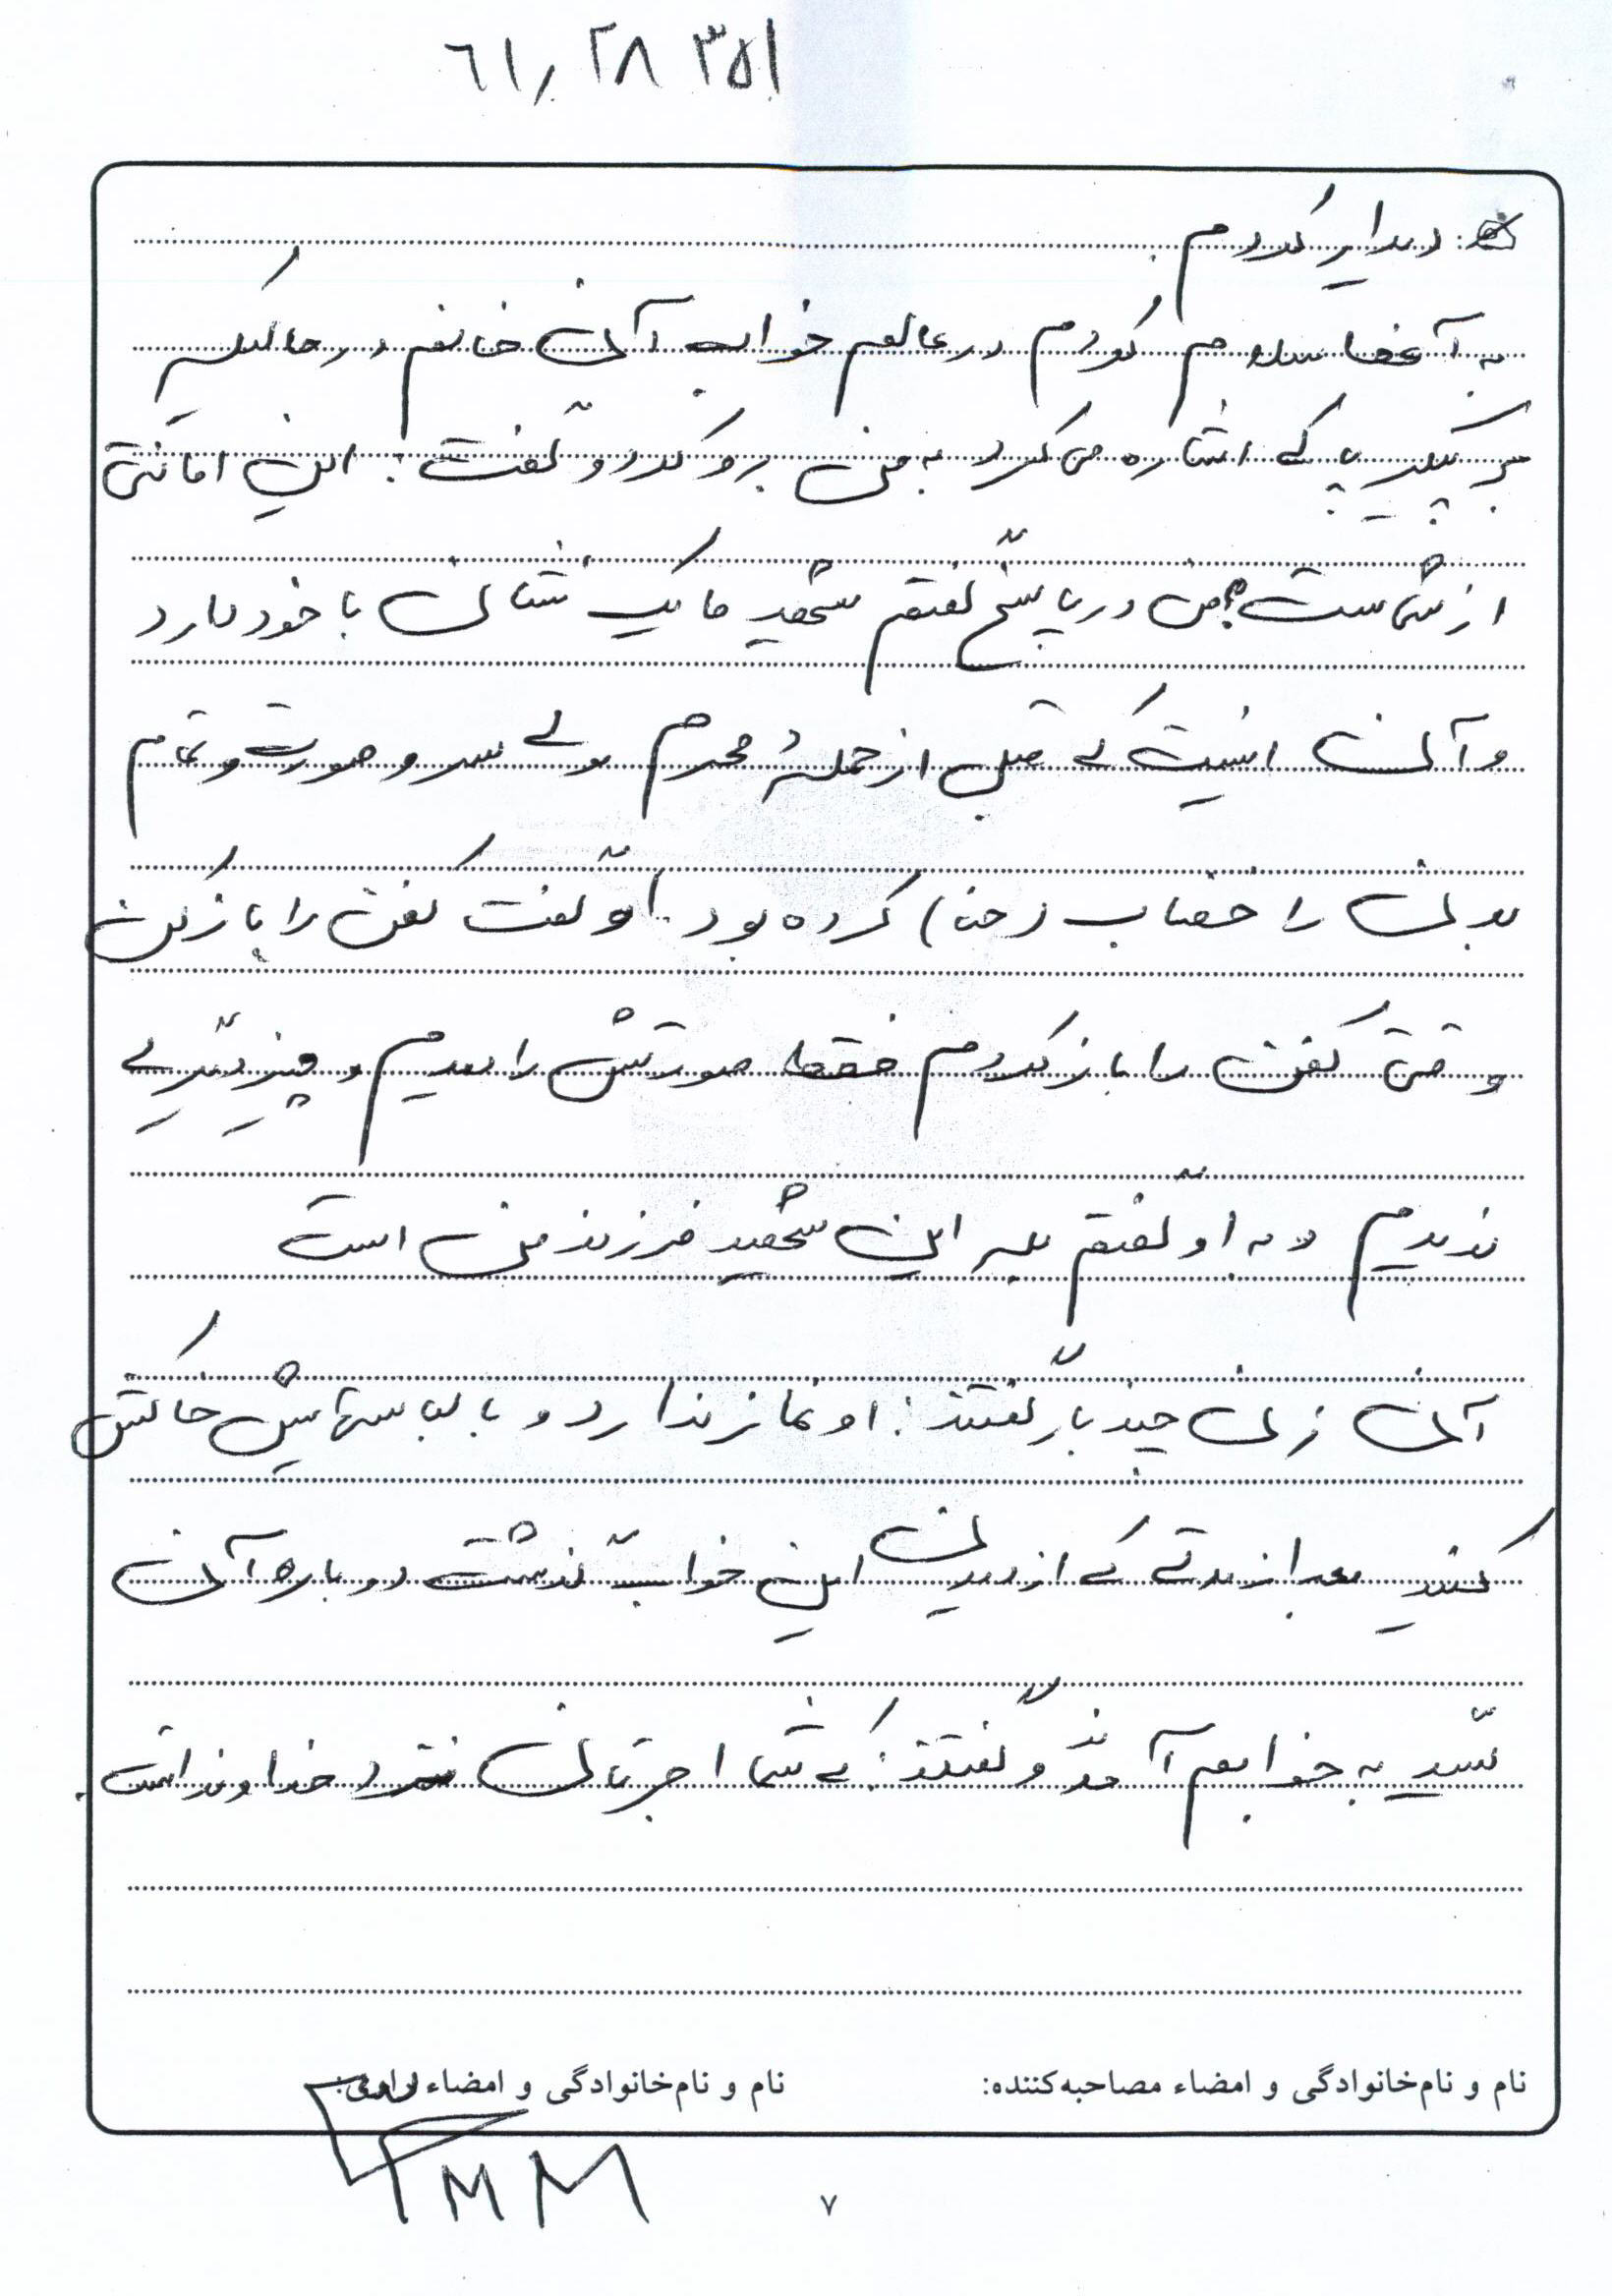 ۶۱۰۲۸۳۵۱
دیدار کردم.
به آنها سلام کردم در عالم خواب آن خانم در حالیکه
بر پیکر پاکی اشاره می کرد به من رو کرد و گفت: این امانتی
از شماست؟ من در پاسخ گفتم شهید ما یک نشانی با خود دارد
و آن اینست که قبل از حملهٔ محرم سر و صورت و تمام
بدنش را خضاب (حنا) کرده بود. او گفت کفن را باز کن
وقتی کفن را باز کردم فقط صورتش را دیدم و چیز دیگری
ندیدم و به او گفتم بله این شهید فرزند من است
آن زن چند بار گفتند: او نماز ندارد و با لباسهایش خاکش
کنید بعد از مدتی که از دیدن این خواب گذشت دوباره آن
سید به خوابم آمدند و گفتند: که شما اجرتان نزد خداوند است.
نام و نام‌خانوادگی و امضاء مصاحبه‌کننده: نام و نام‌خانوادگی و امضاء راوی:
۷